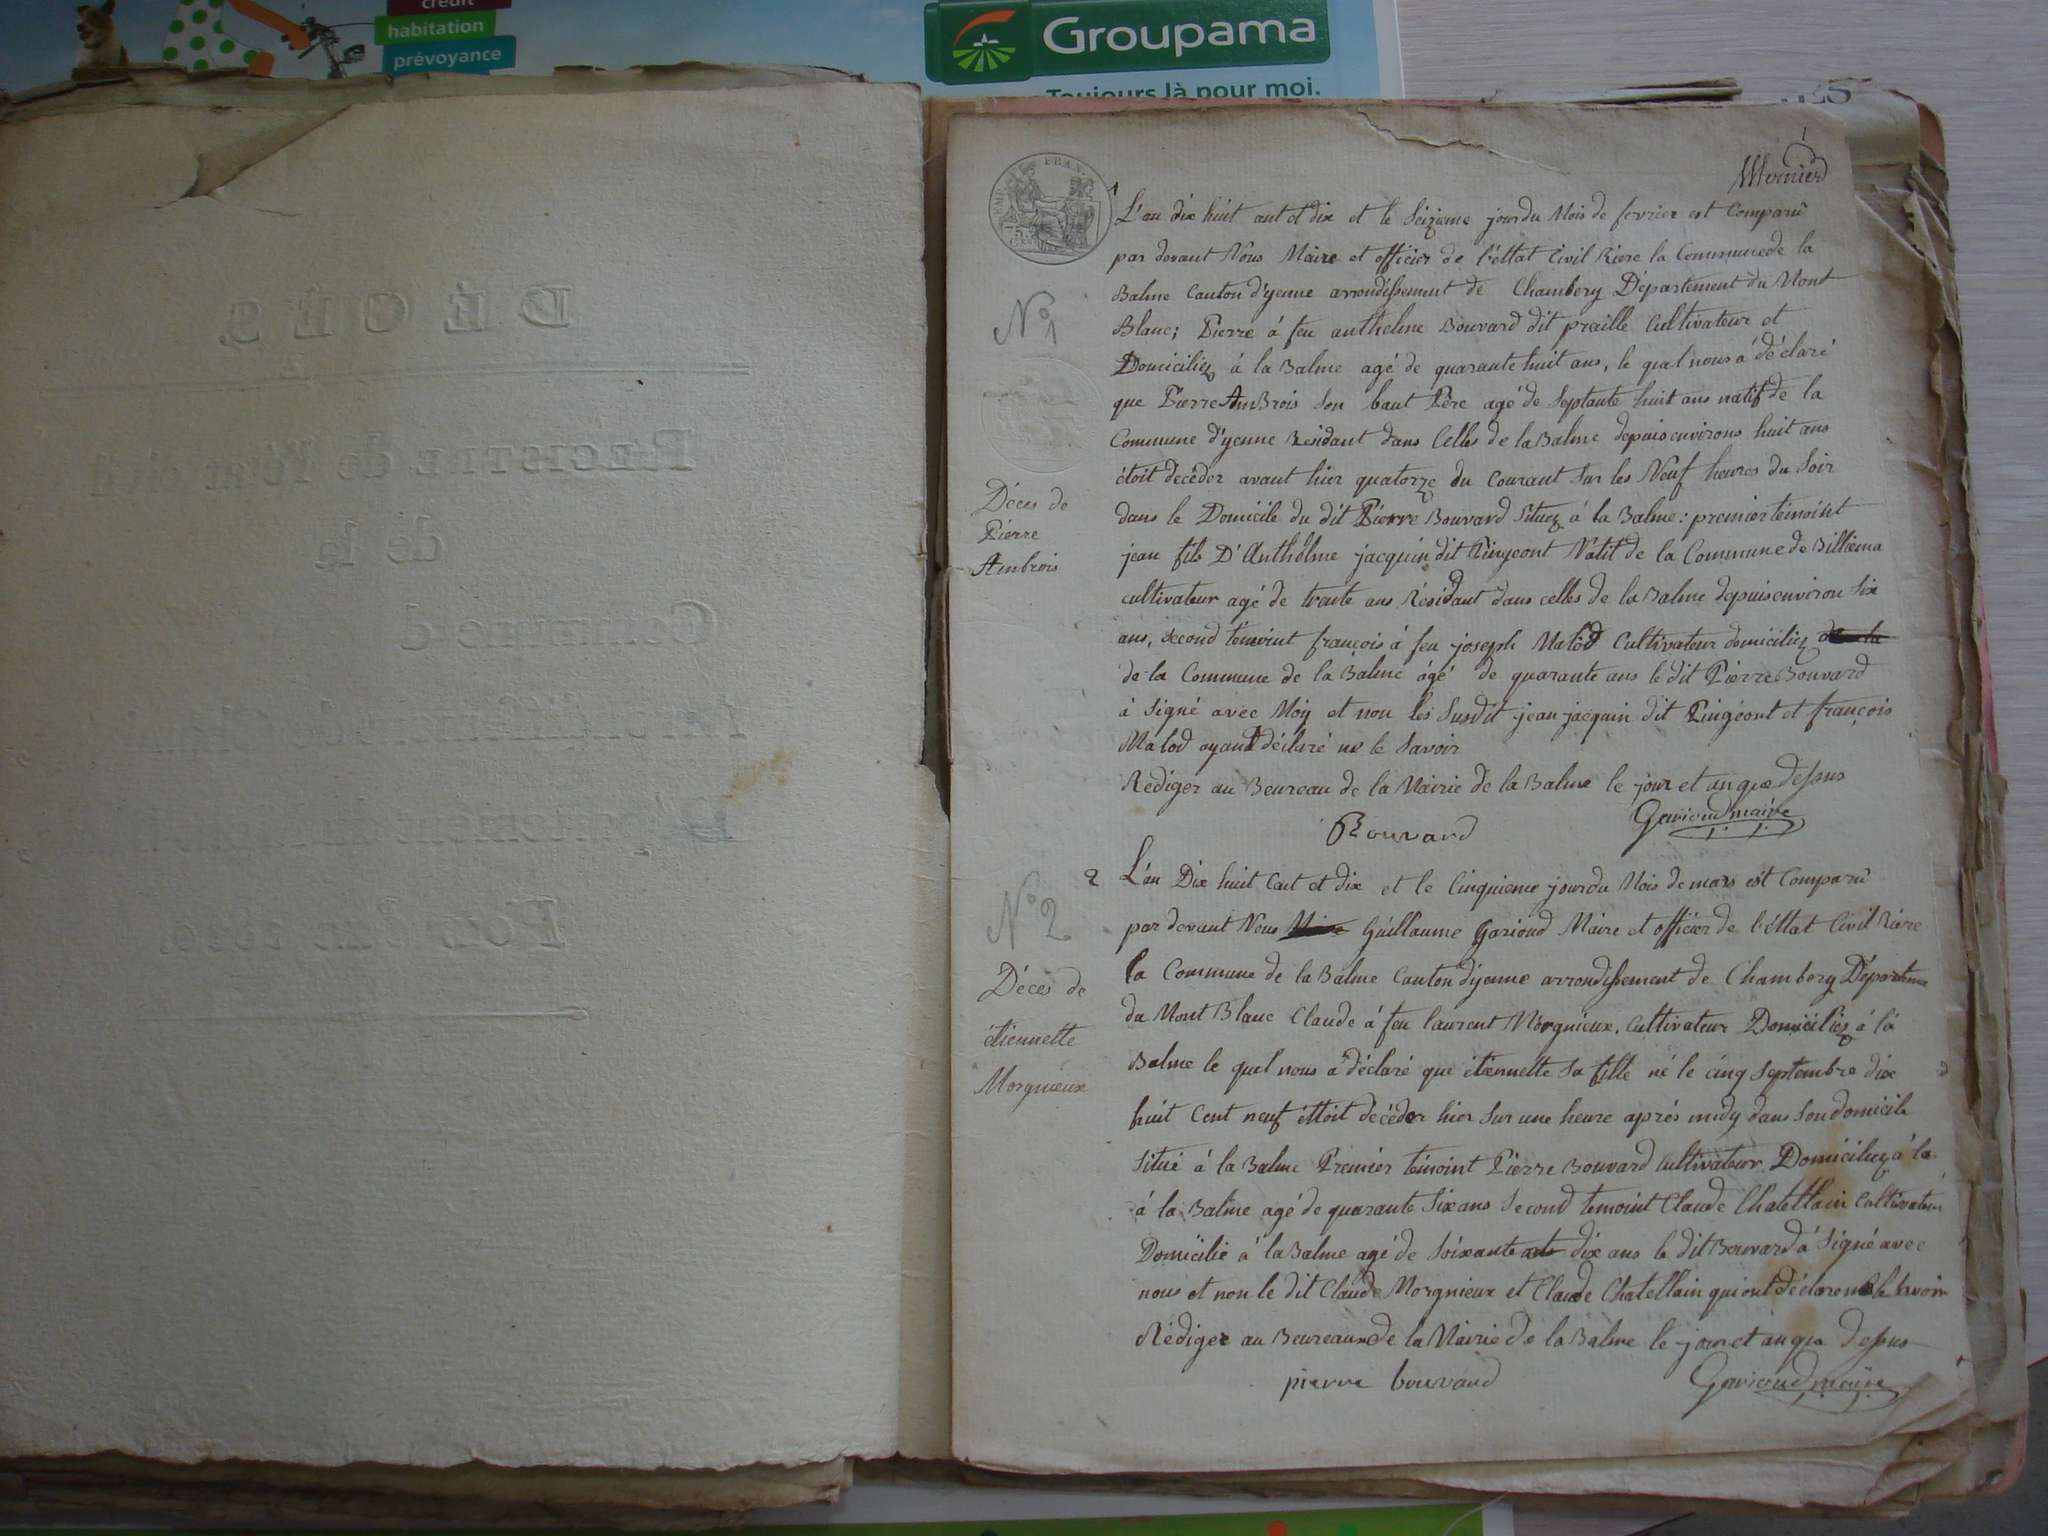 crédit
habitation
prévoyance
Groupama
Toujours là pour moi.
DÉCÈS.
REGISTRE de l'état civil
de la
Commune d
Pour l'an 1810.
1
N° 1
Décès de
Pierre
Ambrois
1 L'an dix huit cent et dix et le Seizieme jour du Mois de fevrier est Comparû
par devant Nous Maire et officier de l'éttat Civil Riere la Commune de la
Balme Canton d'yenne arrondissement de Chambery Département du Mont
Blanc; Pierre à feu anthelme Bouvard dit praille Cultivateur et
Domiciliez à la Balme agé de quarante huit ans, le quel nous à déclaré
que Pierre AmBrois Son baut Père agé de Septante huit ans natif de la
Commune d'yenne Residant dans Celles de la Balme depuis environs huit ans
étoit decéder avant hier quatorze du Courant Sur les Neuf heures du Soir
dans le Domicile du dit Pierre Bouvard Situez à la Balme: premier témoint
jean fils D'Anthelme jacquin dit Pingeont Natif de la Commune de Billiema
cultivateur agé de trente ans Résidant dans celles de la Balme depuis environ Six
ans, second témoint françois à feu joseph Malod Cultivateur domiciliez de la
de la Commune de la Balme âgé de quarante ans le dit Pierre Bouvard
à Signé avec Moy et non les Susdit jean jacquin dit Pingeont et françois
Malod ayant déclaré ne le Savoir
Rediger au Beureau de la Mairie de la Balme le jour et an que dessus
Bouvard Garioud maire
N° 2
Décès de
étiennette
Morgnieux
2 L'an Dix huit Cent et dix et le Cinquieme jour du Mois de mars est Comparû
par devant Nous Maire Guillaume Garioud Maire et officier de l'éttat Civil Riere
la Commune de la Balme Canton d'yenne arrondissement de Chambery Départeme
du Mont Blanc Claude à feu laurent Morgnieux, Cultivateur Domiciliez à la
Balme le quel nous à déclaré que étiennette Sa fille né le cinq Septembre dix
huit Cent neuf éttoit décéder hier Sur une heure aprés midy dans Son domicile
Situé à la Balme Premier témoint Pierre Bouvard Cultivateur Domiciliez à la
à la Balme agé de quarante Six ans Second témoint Claude Chatellain Cultivateur
Domicilié à la Balme agé de Soixante dix ans le dit Bouvard à Signé avec
nous et non le dit Claude Morgnieux et Claude Chatellain qui ont déclaré ne le Savoir
Rédiger au Beureaux de la Mairie de la Balme le jour et an que dessus
pierre bouvard Garioud maire